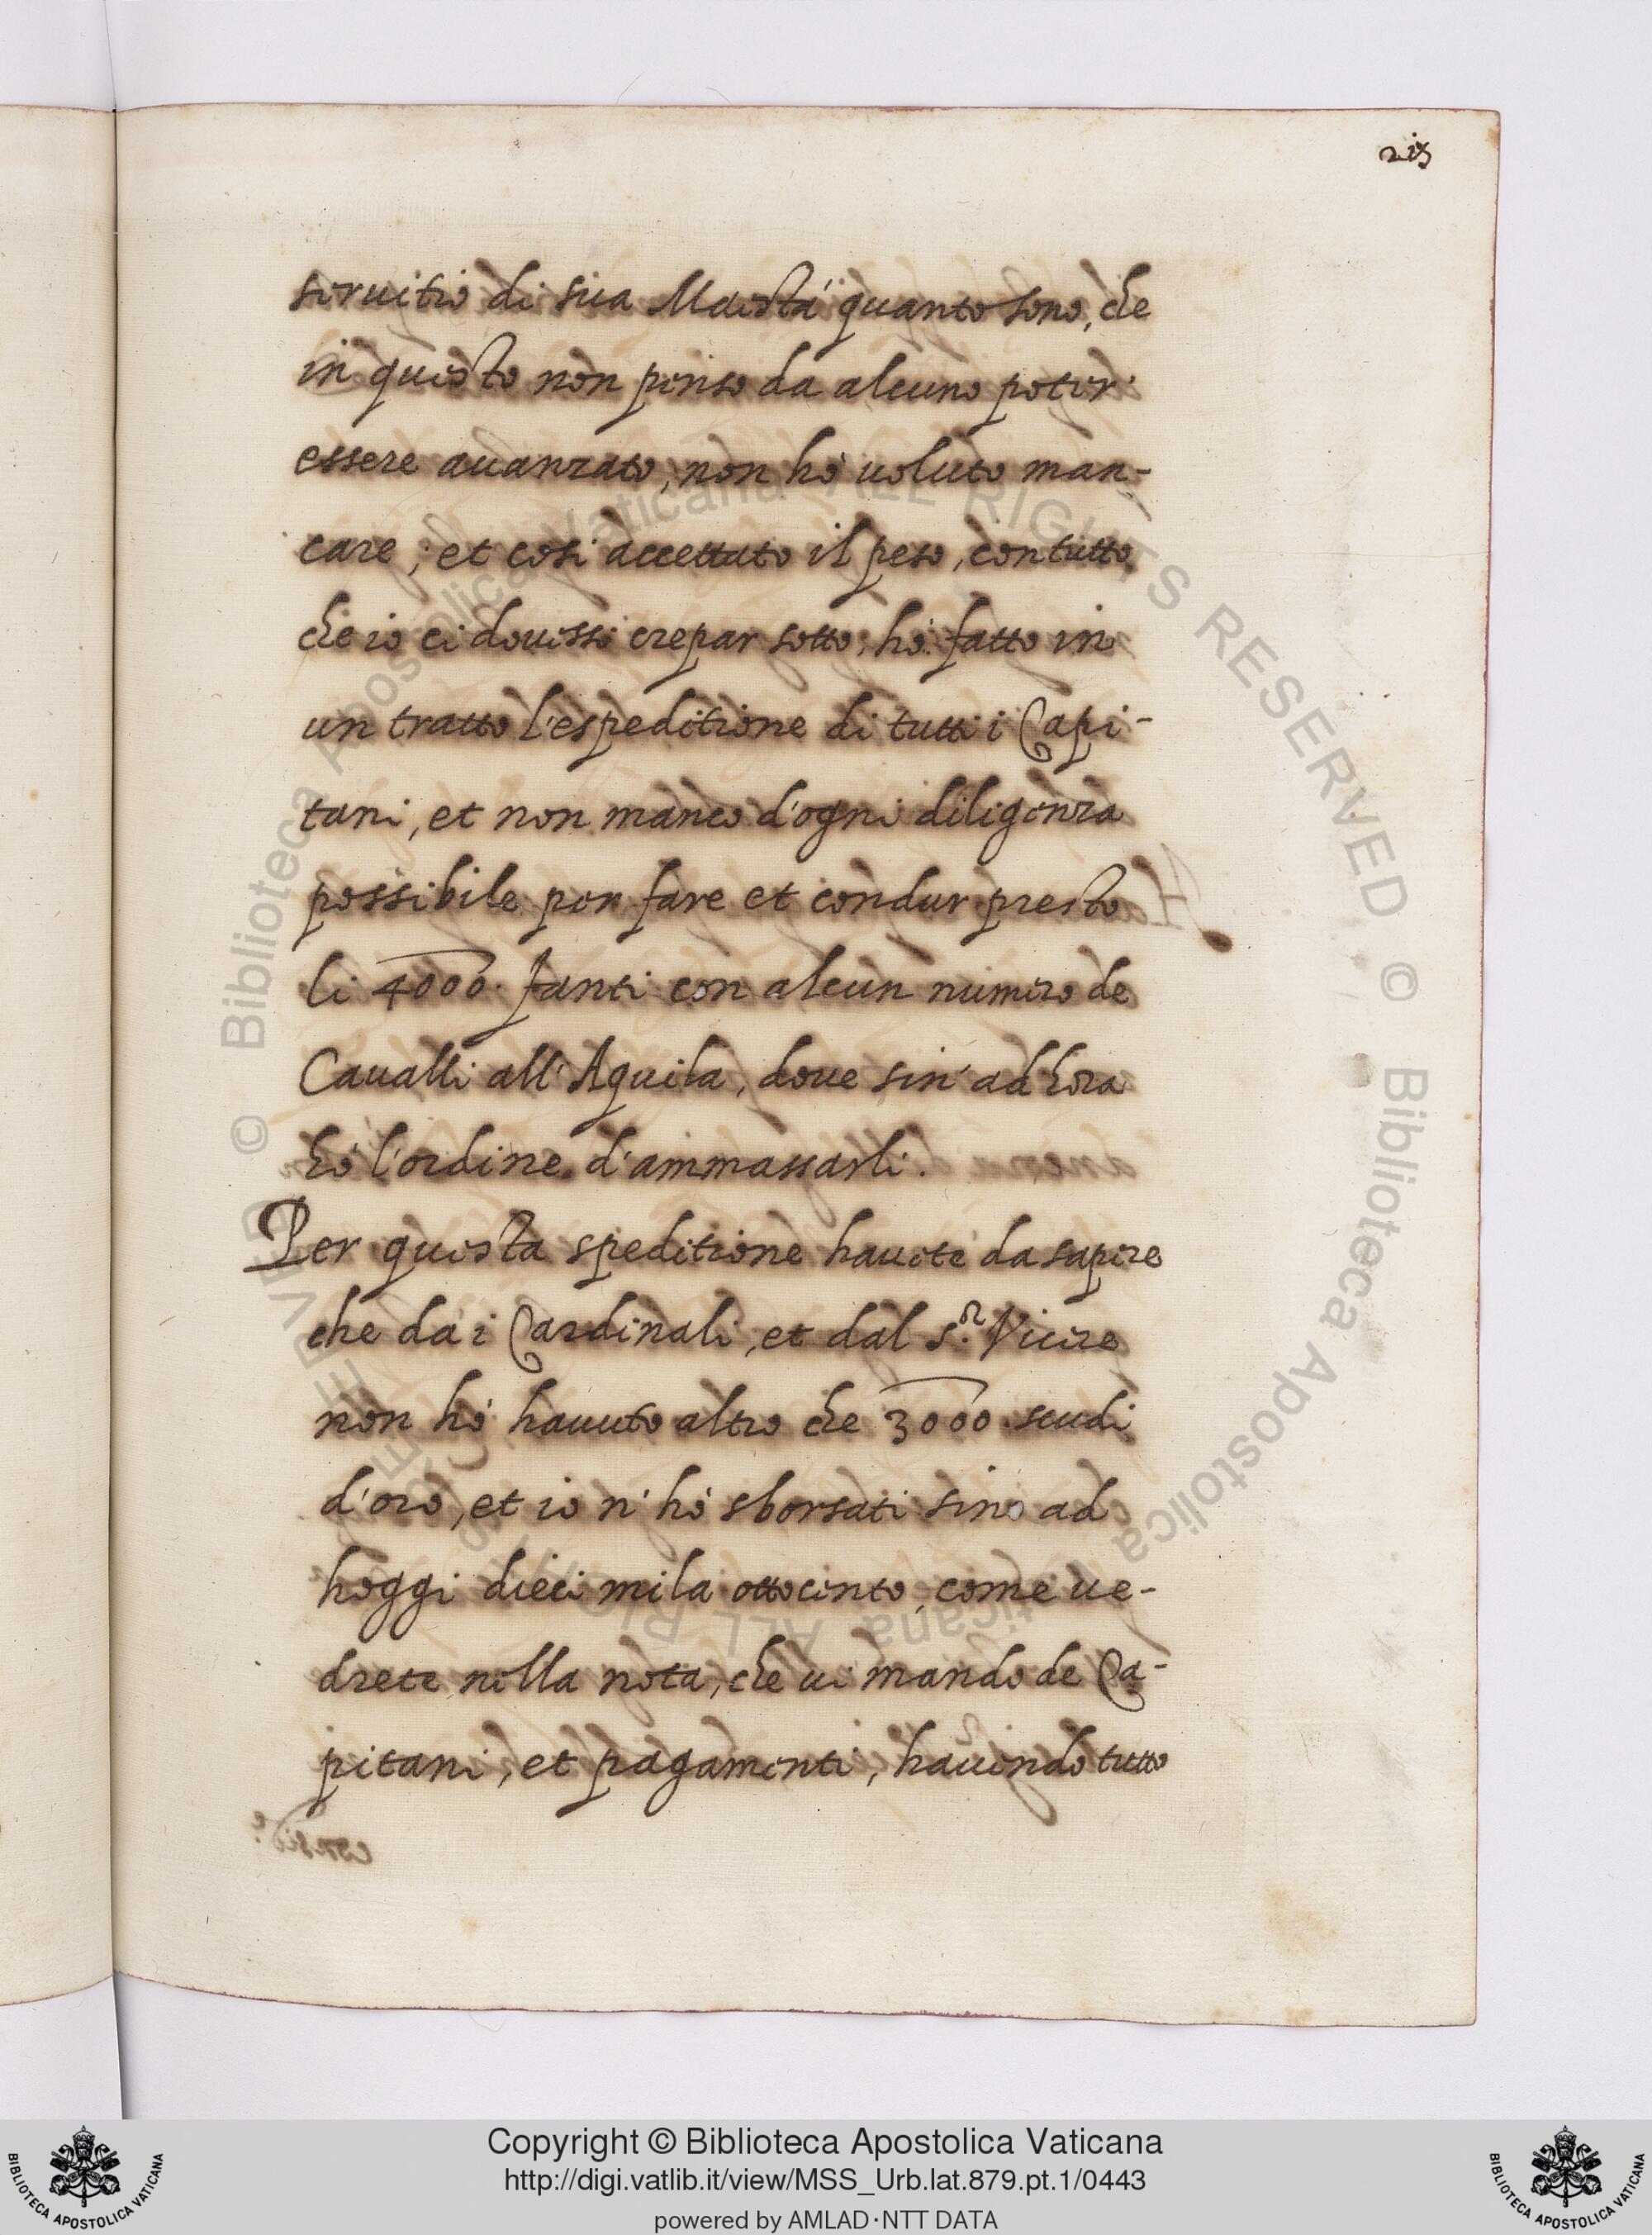 seruitio di sua Maestà quanto sono, che
in questo non penso da alcuno poter'
essere auanzato, non hò uoluto man-
care; et cosi accettato il peso, con tutto
che io ci douessi crepar sotto; hò fatto in
un tratto l'espeditione di tutti i Capi-
tani, et non manco d'ogni diligenza
possibile per fare et condur presto
li 4000. fanti con alcun numero de
Caualli all'Aquila, doue sin' ad hora
hò l'ordine d'ammassarli.
Per questa speditione hauete da sapere
che da i Cardinali, et dal S.r Vicere
non hò hauuto altro che 3000. scudi
d'oro, et io n'hò sborsati sino ad
hoggi dieci mila ottocento, come ue-
drete nella nota, che ui mando de Ca-
pitani, et pagamenti, hauendo tutto
© Biblioteca Apostolica Vaticana ALL RIGHTS RESERVED © Biblioteca Apostolica Vaticana ALL RIGHTS RESERVED
Copyright © Biblioteca Apostolica Vaticana
http://digi.vatlib.it/view/MSS_Urb.lat.879.pt.1/0443
powered by AMLAD·NTT DATA
BIBLIOTECA APOSTOLICA VATICANA
BIBLIOTECA APOSTOLICA VATICANA